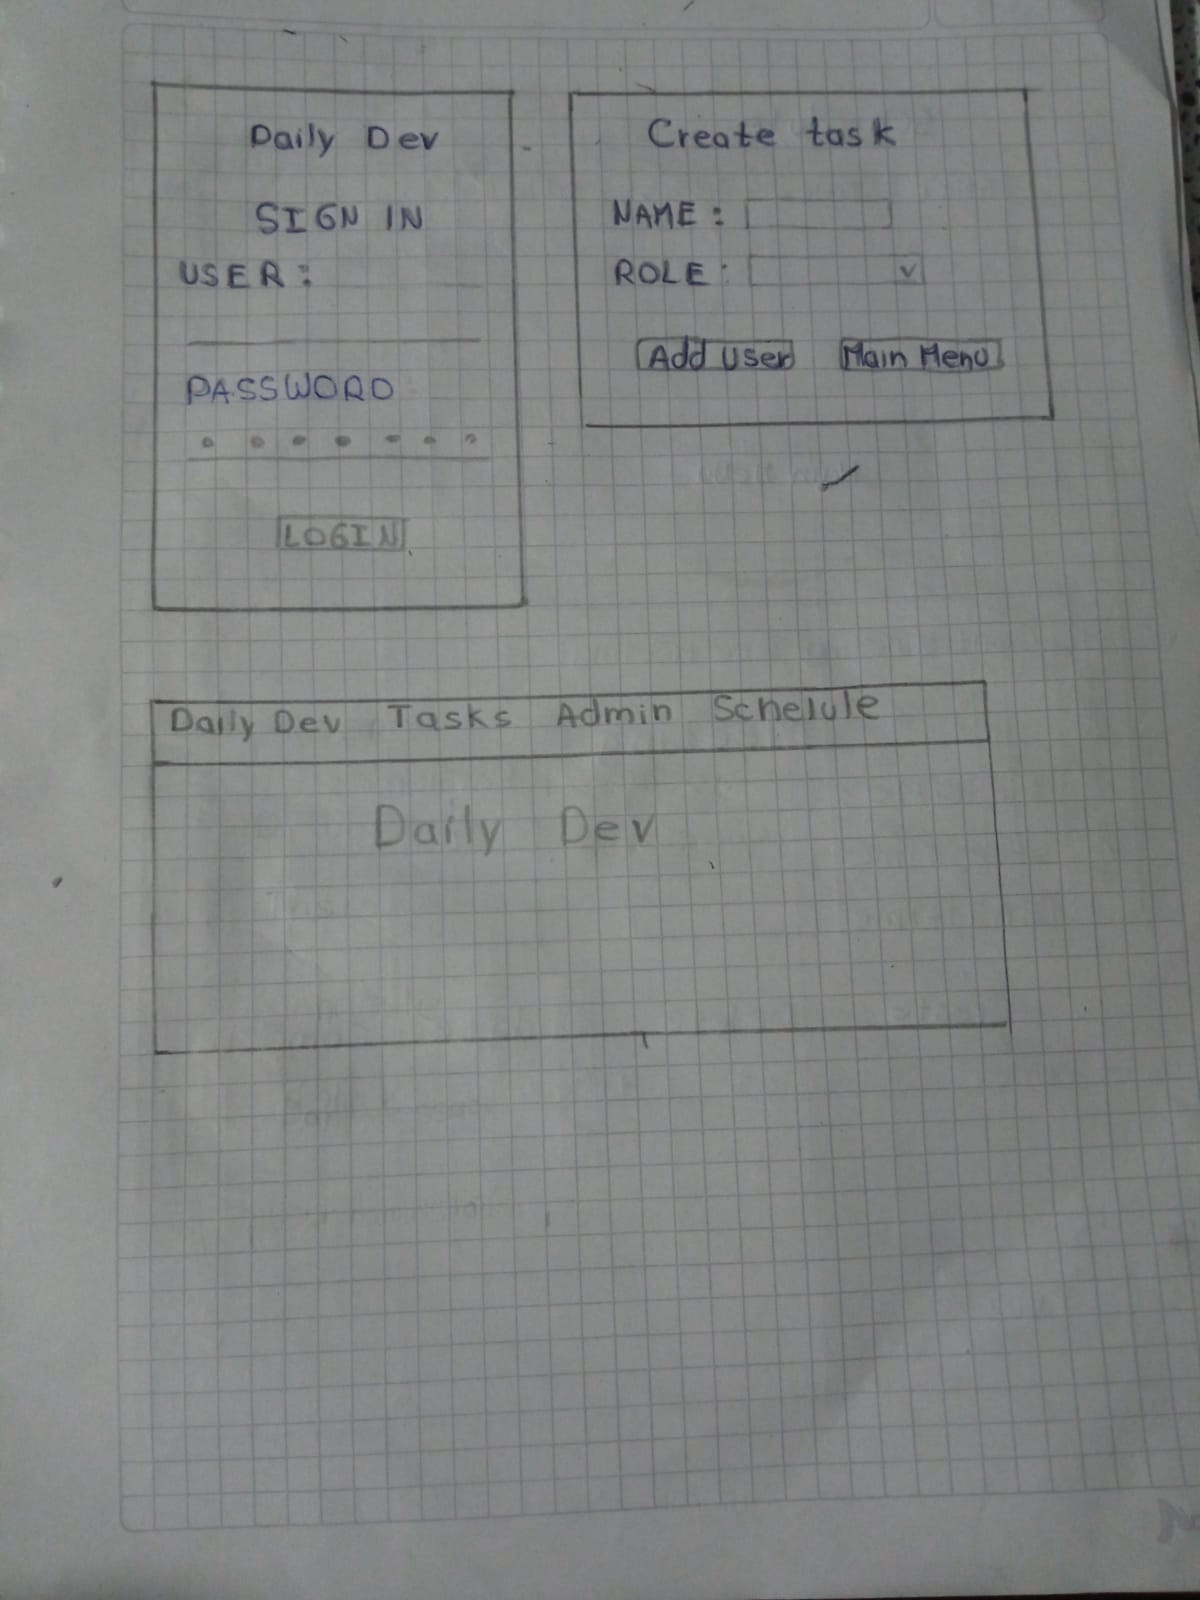 Daily Dev
SIGN IN
USER:
PASSWORD
LOGIN
Create task
NAME:
ROLE: v
Add User Main Menu
Daily Dev Tasks Admin Schelule
Daily Dev